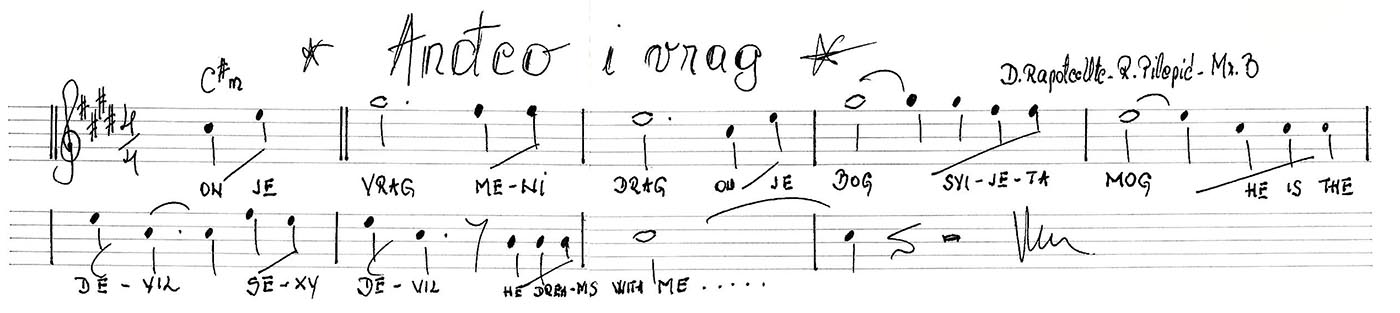 * Anđeo i vrag *
C#m
D. Rapotec Ute - R. Pilepić - Mr. B
4/4
ON JE VRAG ME-NI DRAG ON JE BOG SVI-JE-TA MOG HE IS THE
DE-VIL SE-XY DE-VIL HE DREA-MS WITH ME .....